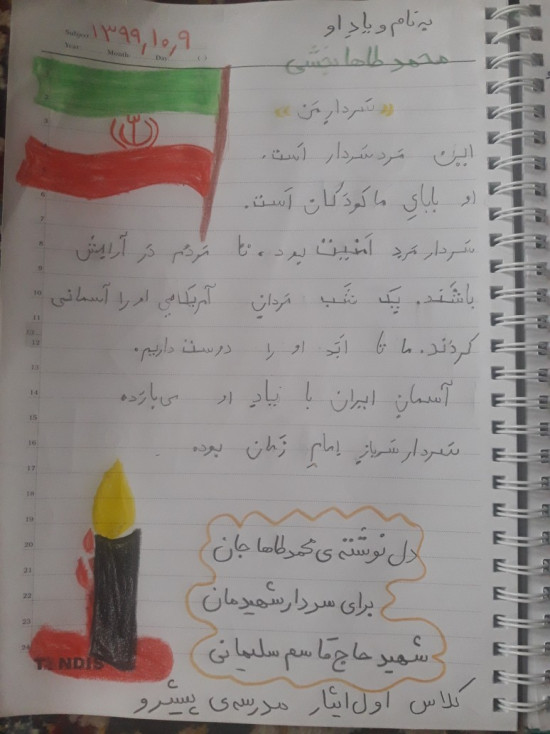 به نام و یاد او
Subject: ۱۳۹۹,۱۰,۹
Year: Month: Day:
محمد طاها بخشی
«سَردارِ مَن»
این مَرد سَردار اَست.
او بابایِ ما کودَکان اَست.
سَردار مَردِ اَمنیَت بود، تا مَردُم دَر آرایِش
باشَند. یِک شَب مَردانِ آمریکایی او را آسمانی
کَردَند. ما تا اَبَد او را دوست داریم.
آسِمانِ ایران با یادِ او می‌بارَده
سَردار سَربازِ اِمامِ زَمان بوده
دل نوشته ی محمد طاها جان
برای سردار شهیدمان
شهید حاج قاسم سلیمانی
TANDIS
کلاس اول ایثار مدرسه‌ی پیشرو